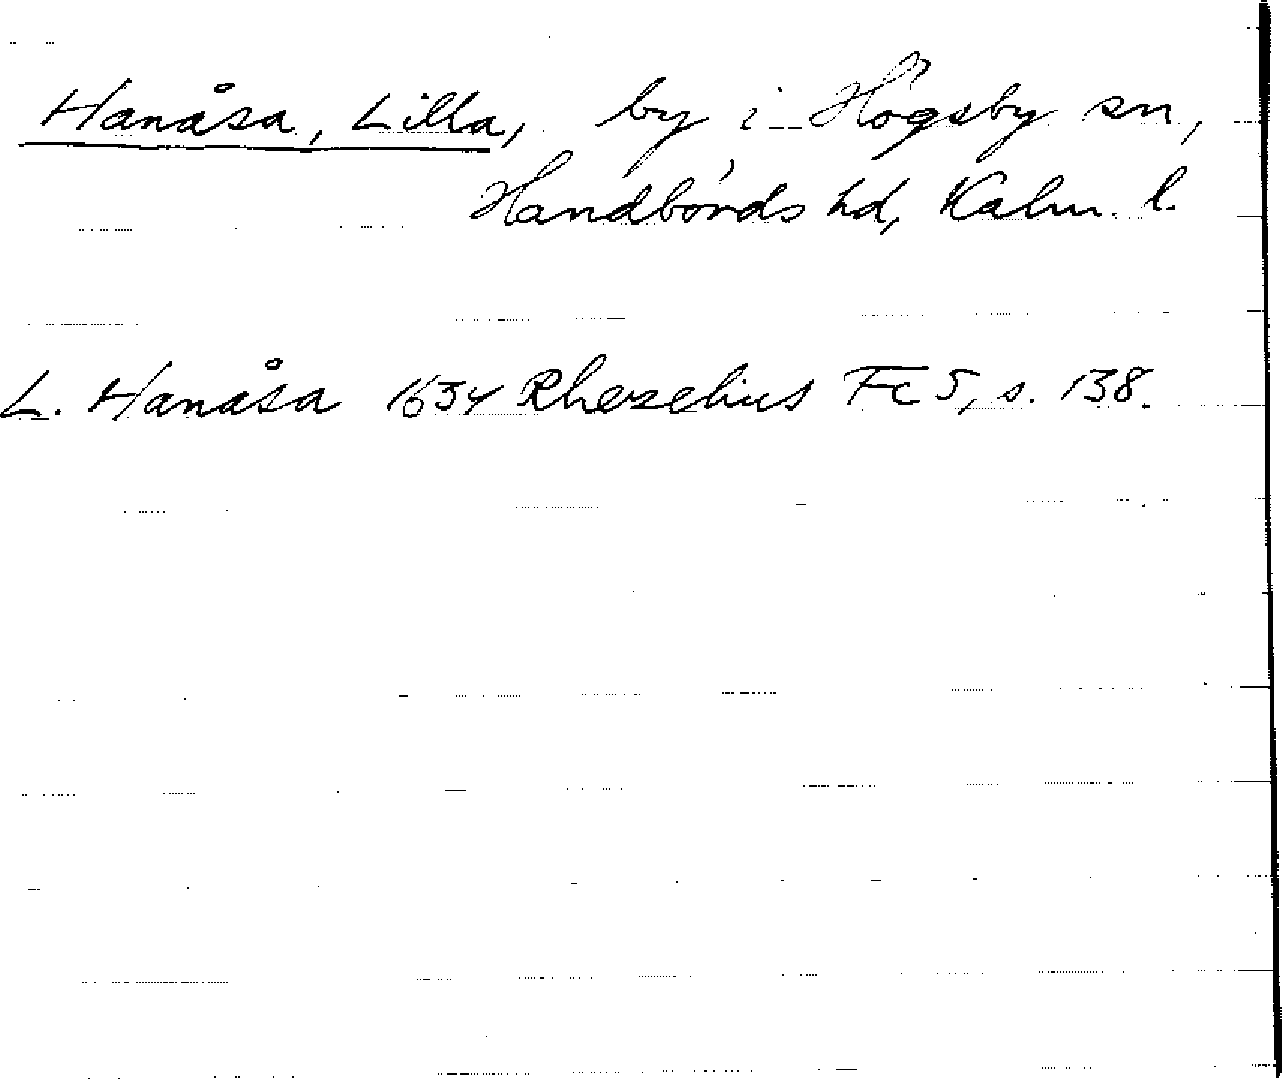 Hanåsa, Lilla, by i Högsby sn,
Handbörds hd, Kalm. l.
L. Hanåsa 1634 Rhezelius Fc 5, s. 138.